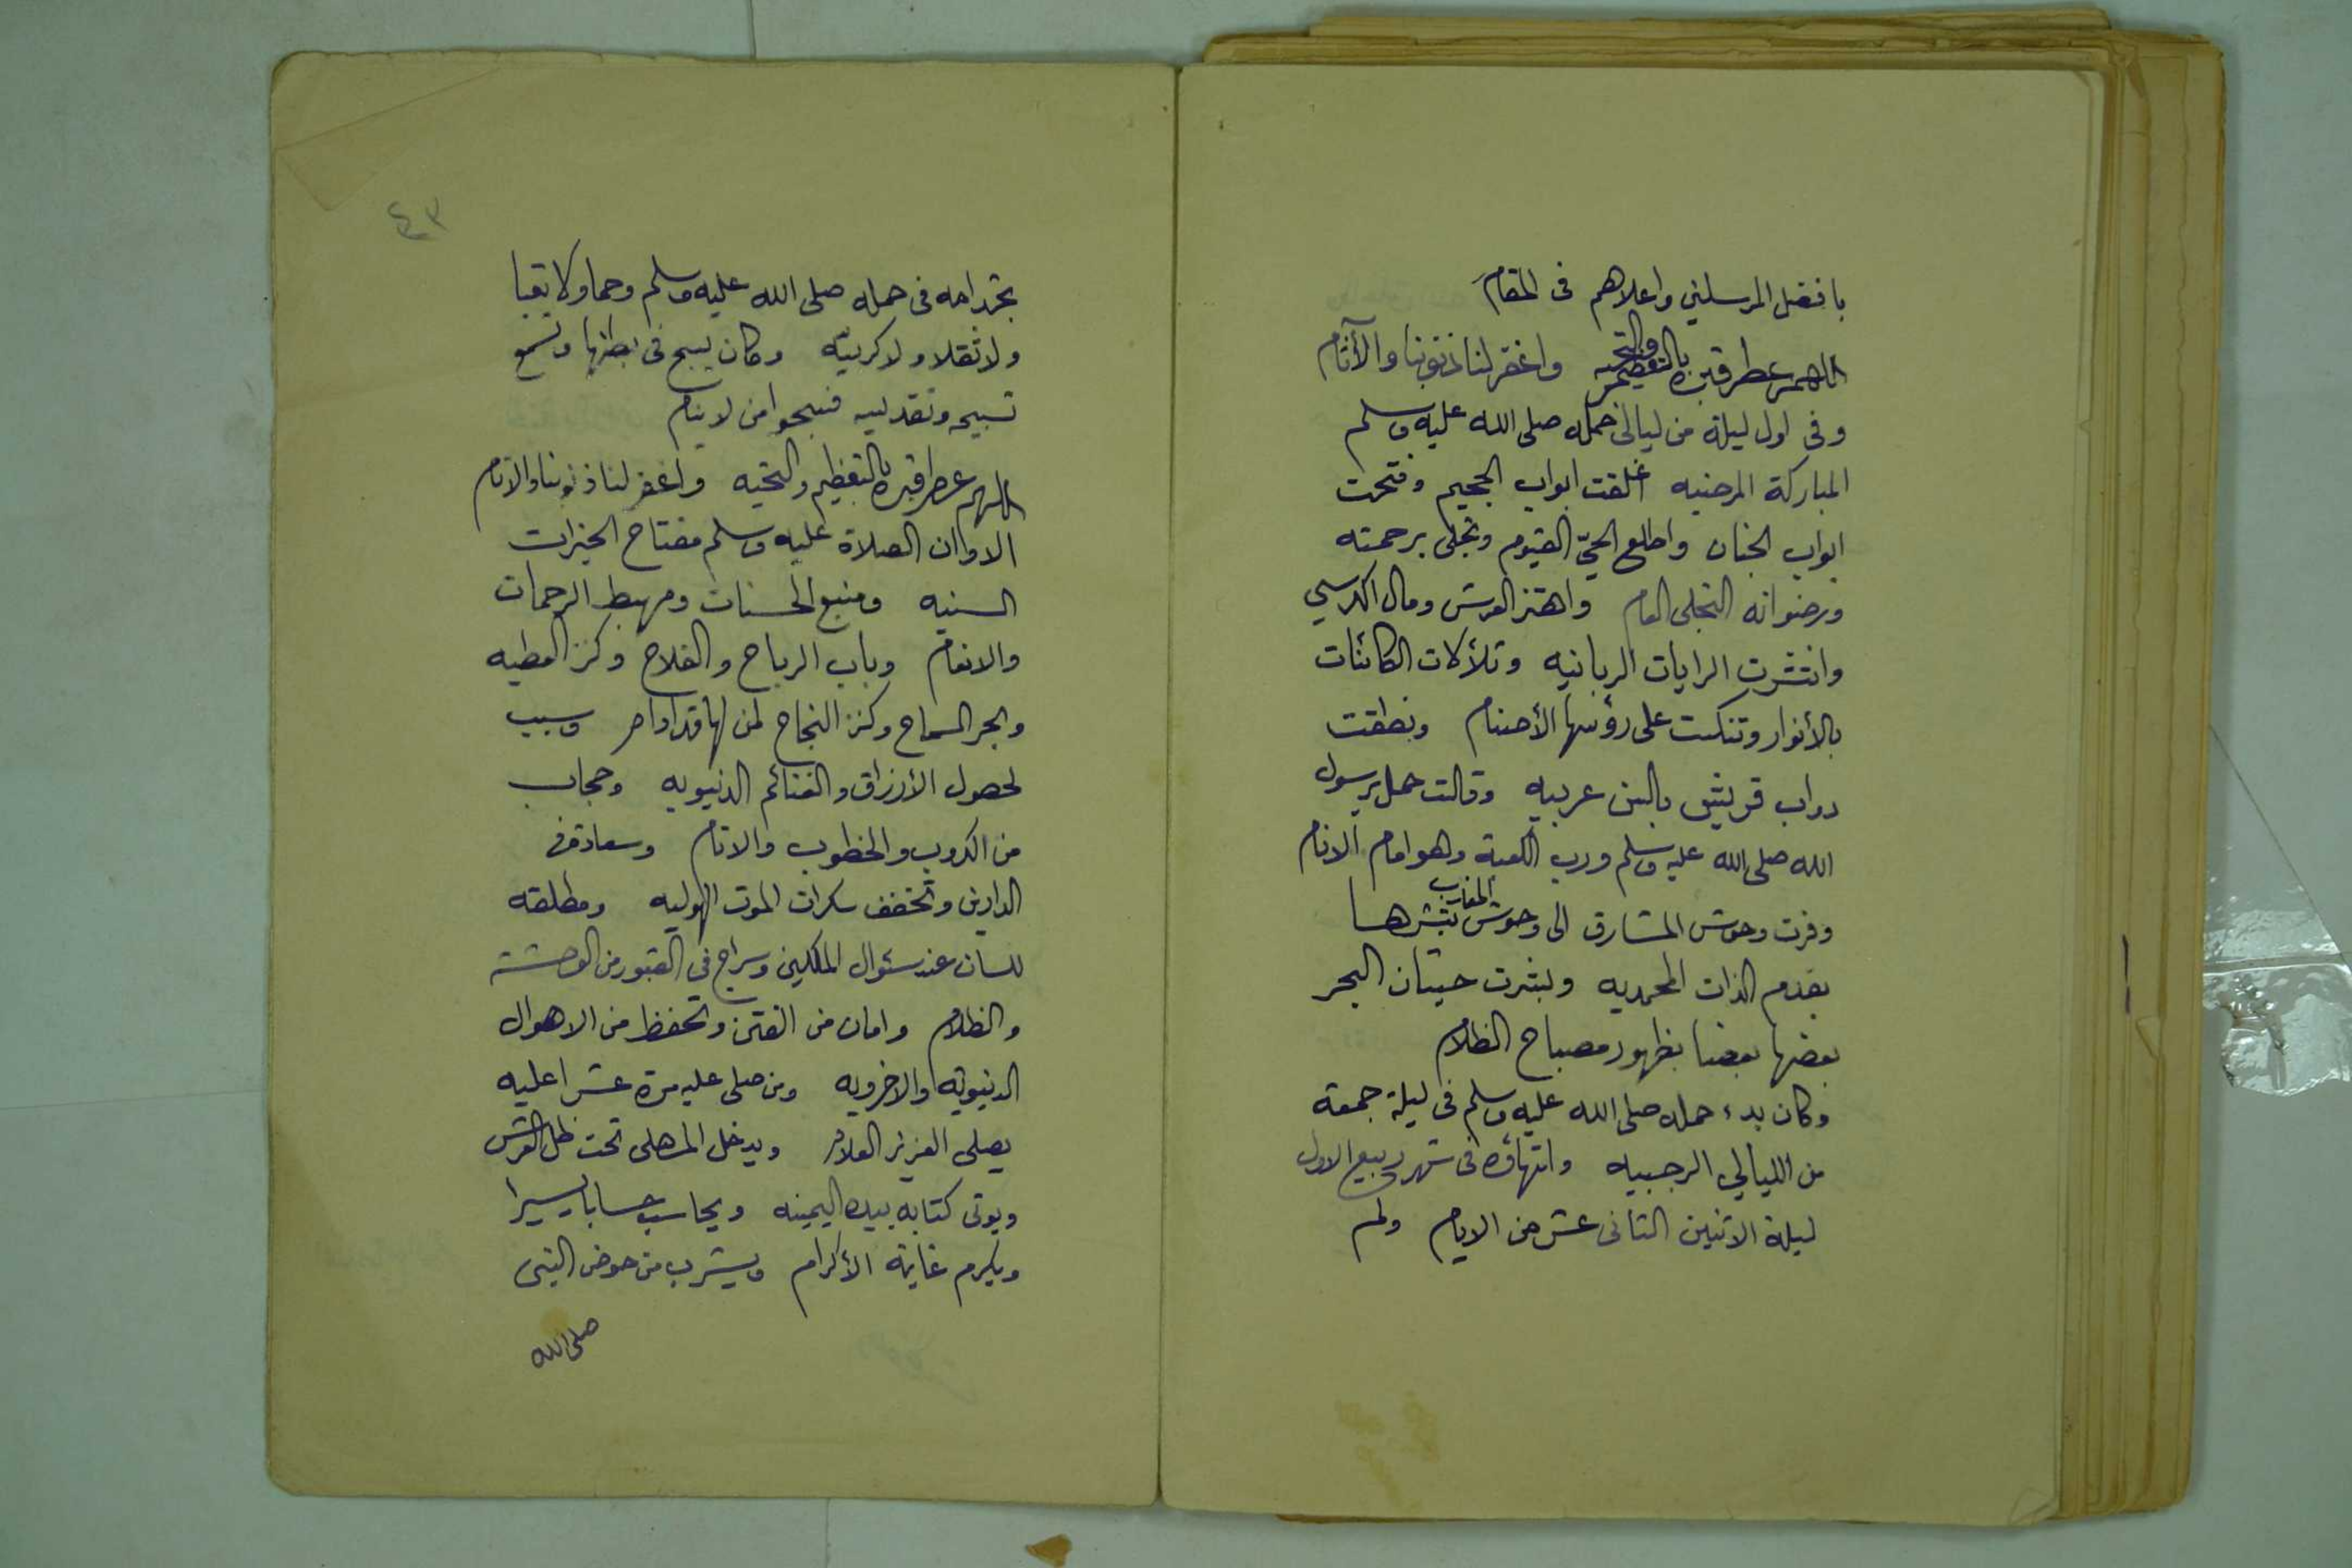 بافضل المرسلين واعلاهم فى المقام
اللهم عطر قبره بالتعظيم والتحيه واغفر لنا ذنوبنا والآثام
وفى اول ليلة من ليالى حمله صلى الله عليه وسلم
المباركة المرضيه اغلقت ابواب الجحيم وفتحت
ابواب الجنان واطلع الحيّ القيوم وتجلى برحمته
ورضوانه التجلى العام واهتز العرش ومال الكرسي
وانتشرت الرايات الربانيه وتلألات الكائنات
بالأنوار وتنكست على رؤسها الأصنام ونطقت
دواب قريش بالسن عربيه وقالت حمل برسول
الله صلى الله عليه وسلم ورب الكعبة وهو امام الانام
وفرت وحوش المشارق الى وحوش المغارب تبشرها
بقدم الذات المحمديه وبشرت حيتان البحر
بعضها بعضا بظهور مصباح الظلام
وكان بدء حمله صلى الله عليه وسلم فى ليلة جمعة
من الليالي الرجبيه وانتهاؤه فى شهر ربيع الاول
ليلة الاثنين الثانى عشر من الايام ولم
٤٣
تجد امه فى حمله صلى الله عليه وسلم وحما ولا تعبا
ولا ثقلا ولا كربيه وكان يسبح فى بطنها وتسمع
تسبيحه وتقديسه فسبحوا من لا ينام
اللهم عطر قبره بالتعظيم والتحيه واغفر لنا ذنوبنا والاثام
الا وان الصلاة عليه وسلم مفتاح الخيرات
السنيه ومنبع الحسنات ومهبط الرحمات
والانعام وباب الرباح والفلاح وكنز العطيه
وبحر السماح وكنز النجاح لمن لها قد ادام وسبب
لحصول الأرزاق والغنائم الدنيويه وحجاب
من الكروب والخطوب والاثام وسعادة فى
الدارين وتخفف سكرات الموت الهوليه ومطلقه
للسان عند سئوال الملكين وسراج فى القبور من الوحشة
والظلام وامان من الفتن وتحفظ من الاهوال
الدنيويه والاخرويه ومن صلى عليه مرة عشرا عليه
يصلى العزيز العلام ويدخل المصلى تحت ظل العرش
ويوتى كتابه بيده اليمينه ويحاسب حسابا يسيرا
ويكرم غاية الأكرام ويشرب من حوض النبى
صلى الله